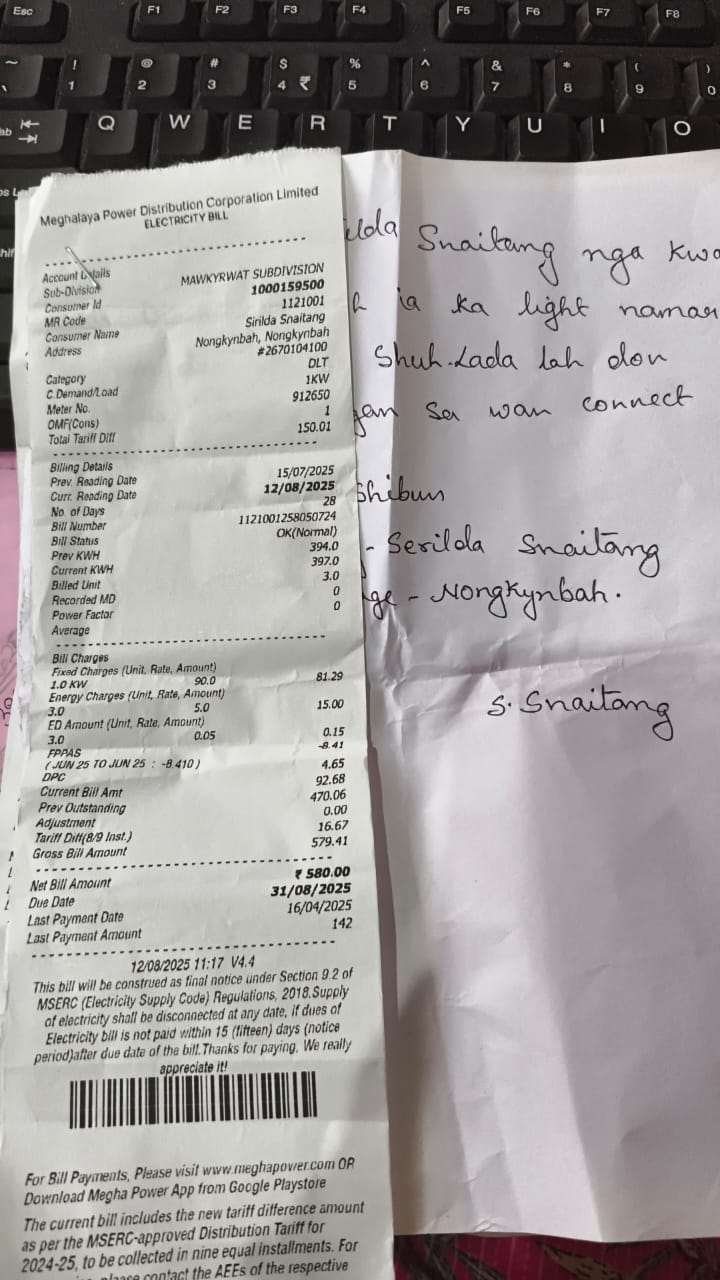 Esc F1 F2 F3 F4 F5 F6 F7 F8
~ ! 1 @ 2 # 3 $ 4 ₹ % 5 ^ 6 & 7 * 8 ( 9 ) 0
Q W E R T Y U I O
Meghalaya Power Distribution Corporation Limited
ELECTRICITY BILL
Account Details
Sub-Division MAWKYRWAT SUBDIVISION
Consumer Id 1000159500
MR Code 1121001
Consumer Name Sirilda Snaitang
Address Nongkynbah, Nongkynbah
#2670104100
Category DLT
C.Demand/Load 1KW
Meter No. 912650
OMF(Cons) 1
Total Tariff Diff 150.01
Billing Details
Prev. Reading Date 15/07/2025
Curr. Reading Date 12/08/2025
No. of Days 28
Bill Number 1121001258050724
Bill Status OK(Normal)
Prev KWH 394.0
Current KWH 397.0
Billed Unit 3.0
Recorded MD 0
Power Factor 0
Average
Bill Charges
Fixed Charges (Unit, Rate, Amount)
1.0 KW 90.0 81.29
Energy Charges (Unit, Rate, Amount)
3.0 5.0 15.00
ED Amount (Unit, Rate, Amount)
3.0 0.05 0.15
FPPAS -8.41
( JUN 25 TO JUN 25 : -8.410 )
DPC 4.65
Current Bill Amt 92.68
Prev Outstanding 470.06
Adjustment 0.00
Tariff Diff(8/9 Inst.) 16.67
Gross Bill Amount 579.41
Net Bill Amount ₹ 580.00
Due Date 31/08/2025
Last Payment Date 16/04/2025
Last Payment Amount 142
12/08/2025 11:17 V4.4
This bill will be construed as final notice under Section 9.2 of
MSERC (Electricity Supply Code) Regulations, 2018.Supply
of electricity shall be disconnected at any date, if dues of
Electricity bill is not paid within 15 (fifteen) days (notice
period)after due date of the bill.Thanks for paying. We really
appreciate it!
For Bill Payments, Please visit www.meghapower.com OR
Download Megha Power App from Google Playstore
The current bill includes the new tariff difference amount
as per the MSERC-approved Distribution Tariff for
2024-25, to be collected in nine equal installments. For
please contact the AEEs of the respective
Snaitang nga
ia ka light namar
Shuh. Lada lah don
sa wan connect
Shibun
- Serilda Snaitang
- Nongkynbah.
S. Snaitang